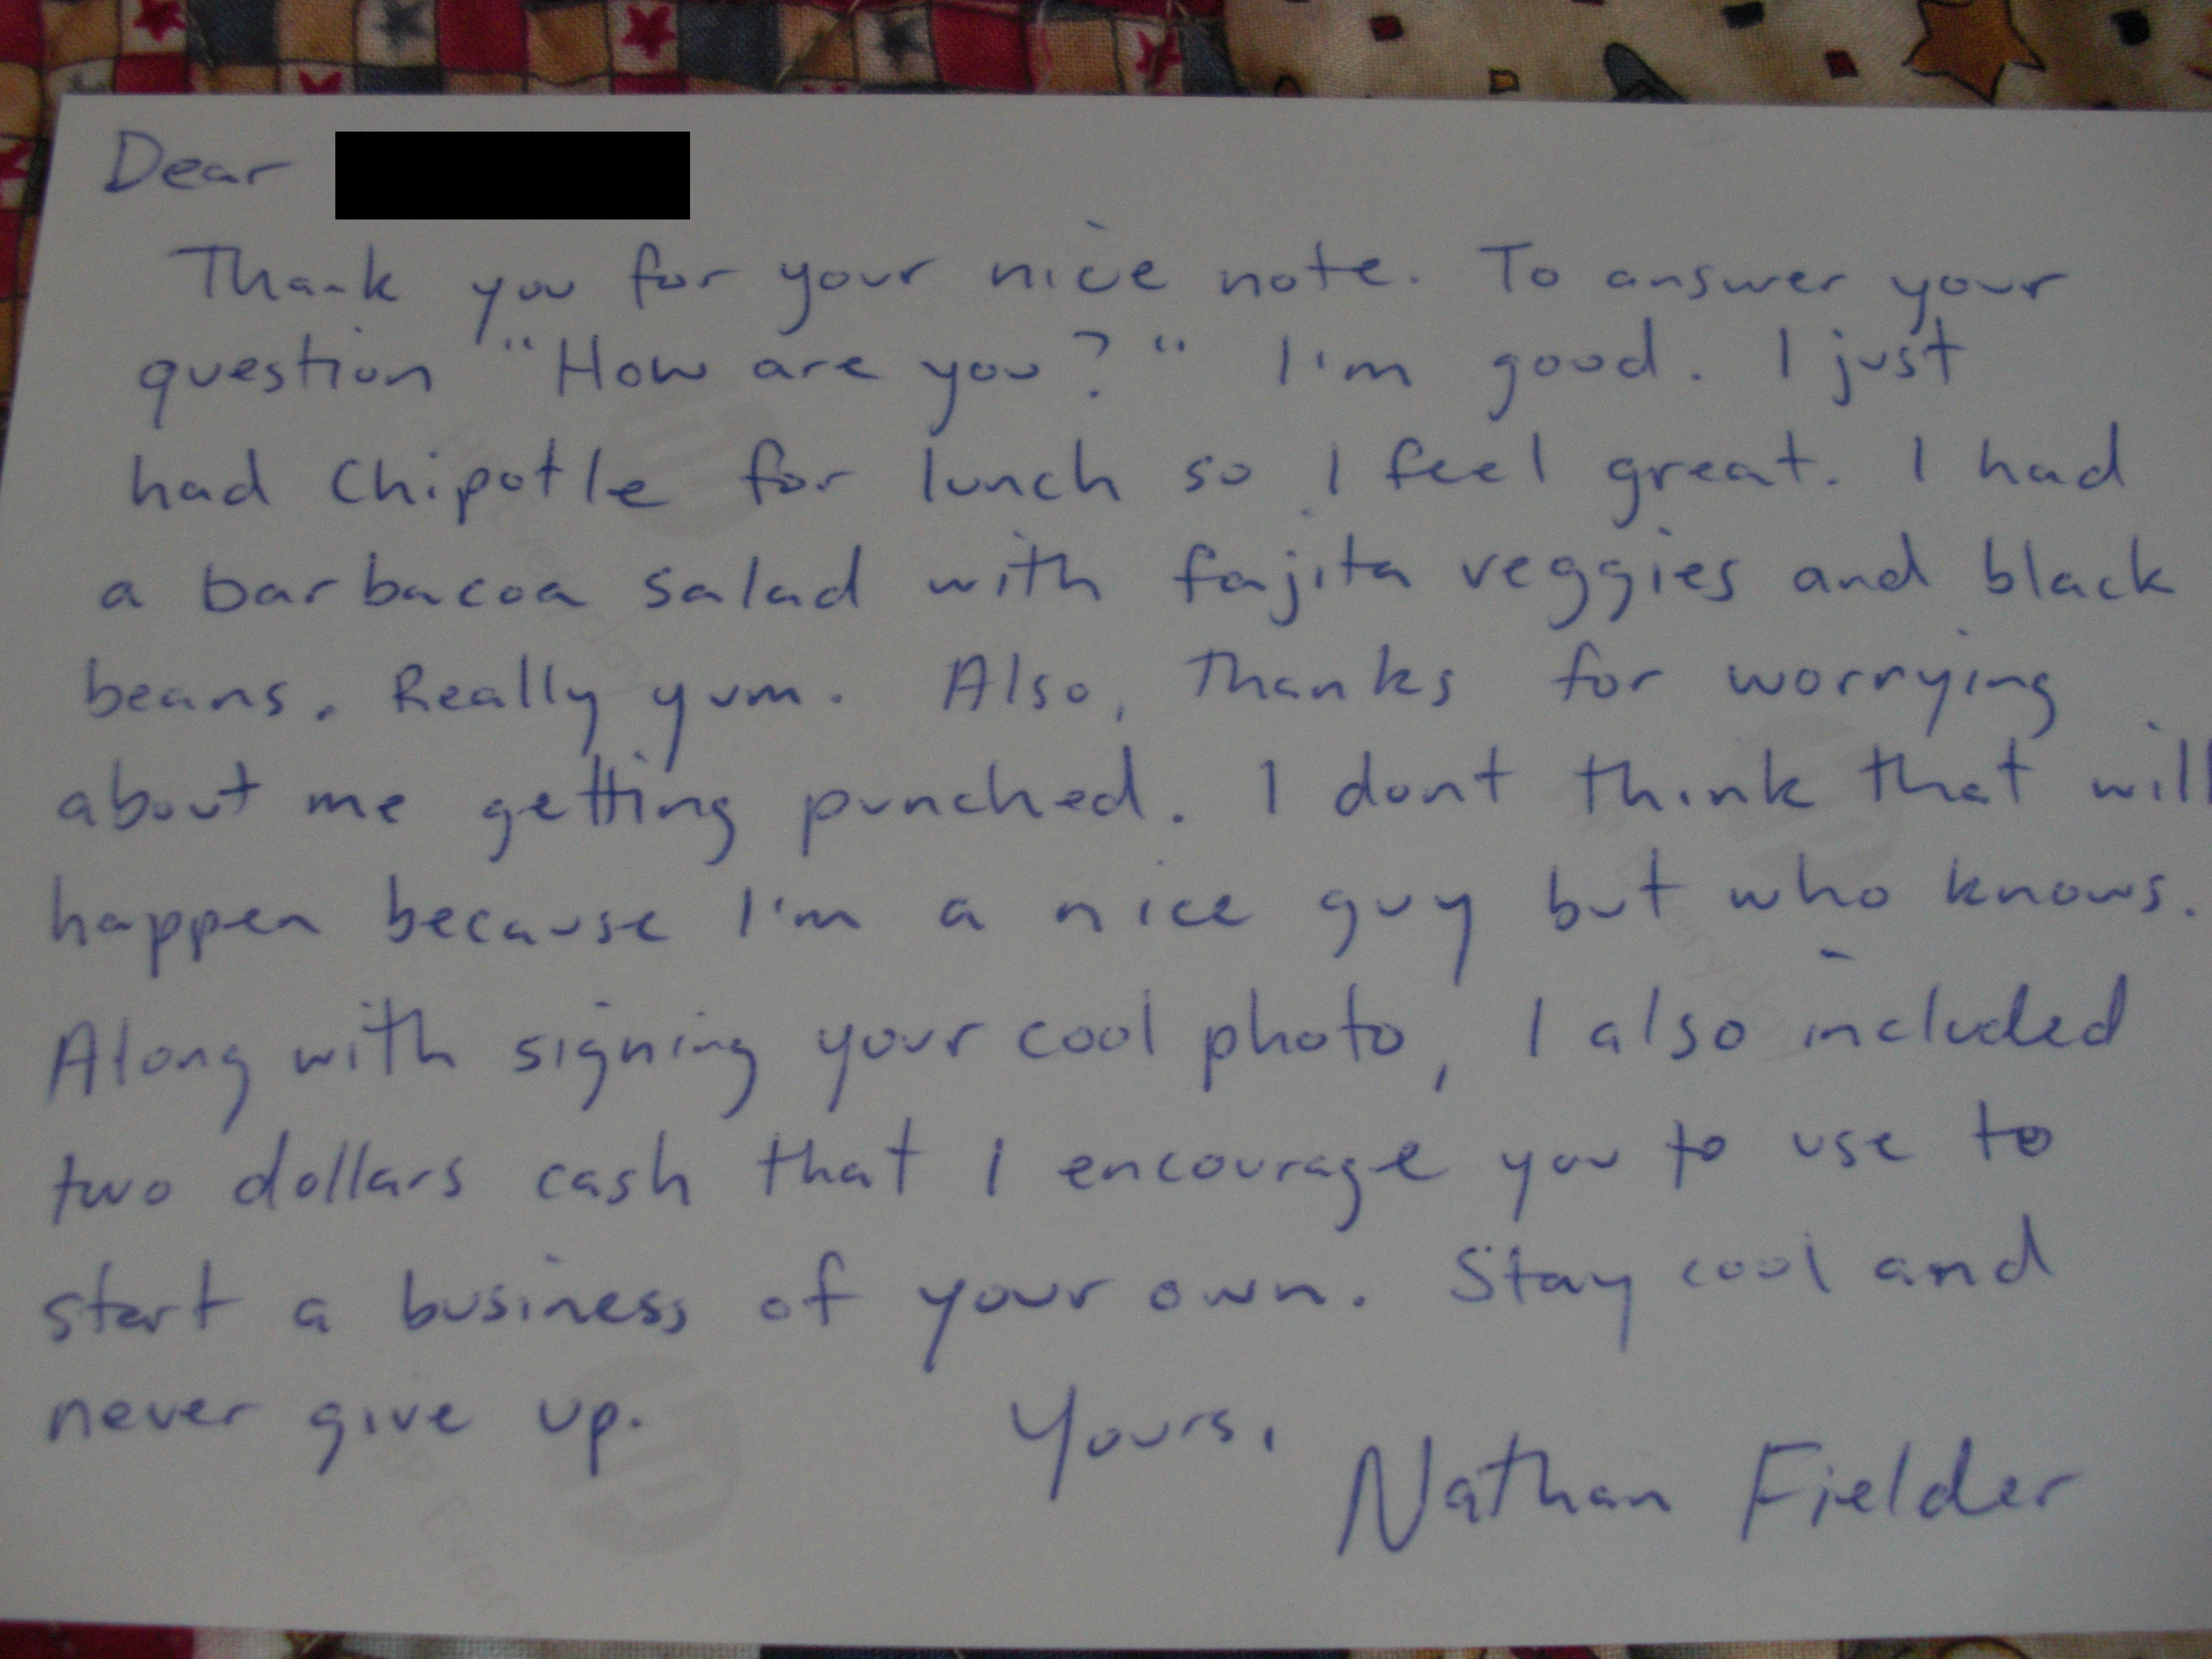 Dear
Thank you for your nice note. To answer your
question "How are you?" I'm good. I just
had Chipotle for lunch so I feel great. I had
a barbacoa salad with fajita veggies and black
beans. Really yum. Also, thanks for worrying
about me getting punched. I dont think that will
happen because I'm a nice guy but who knows.
Along with signing your cool photo, I also included
two dollars cash that I encourage you to use to
start a business of your own. Stay cool and
never give up.
Yours,
Nathan Fielder